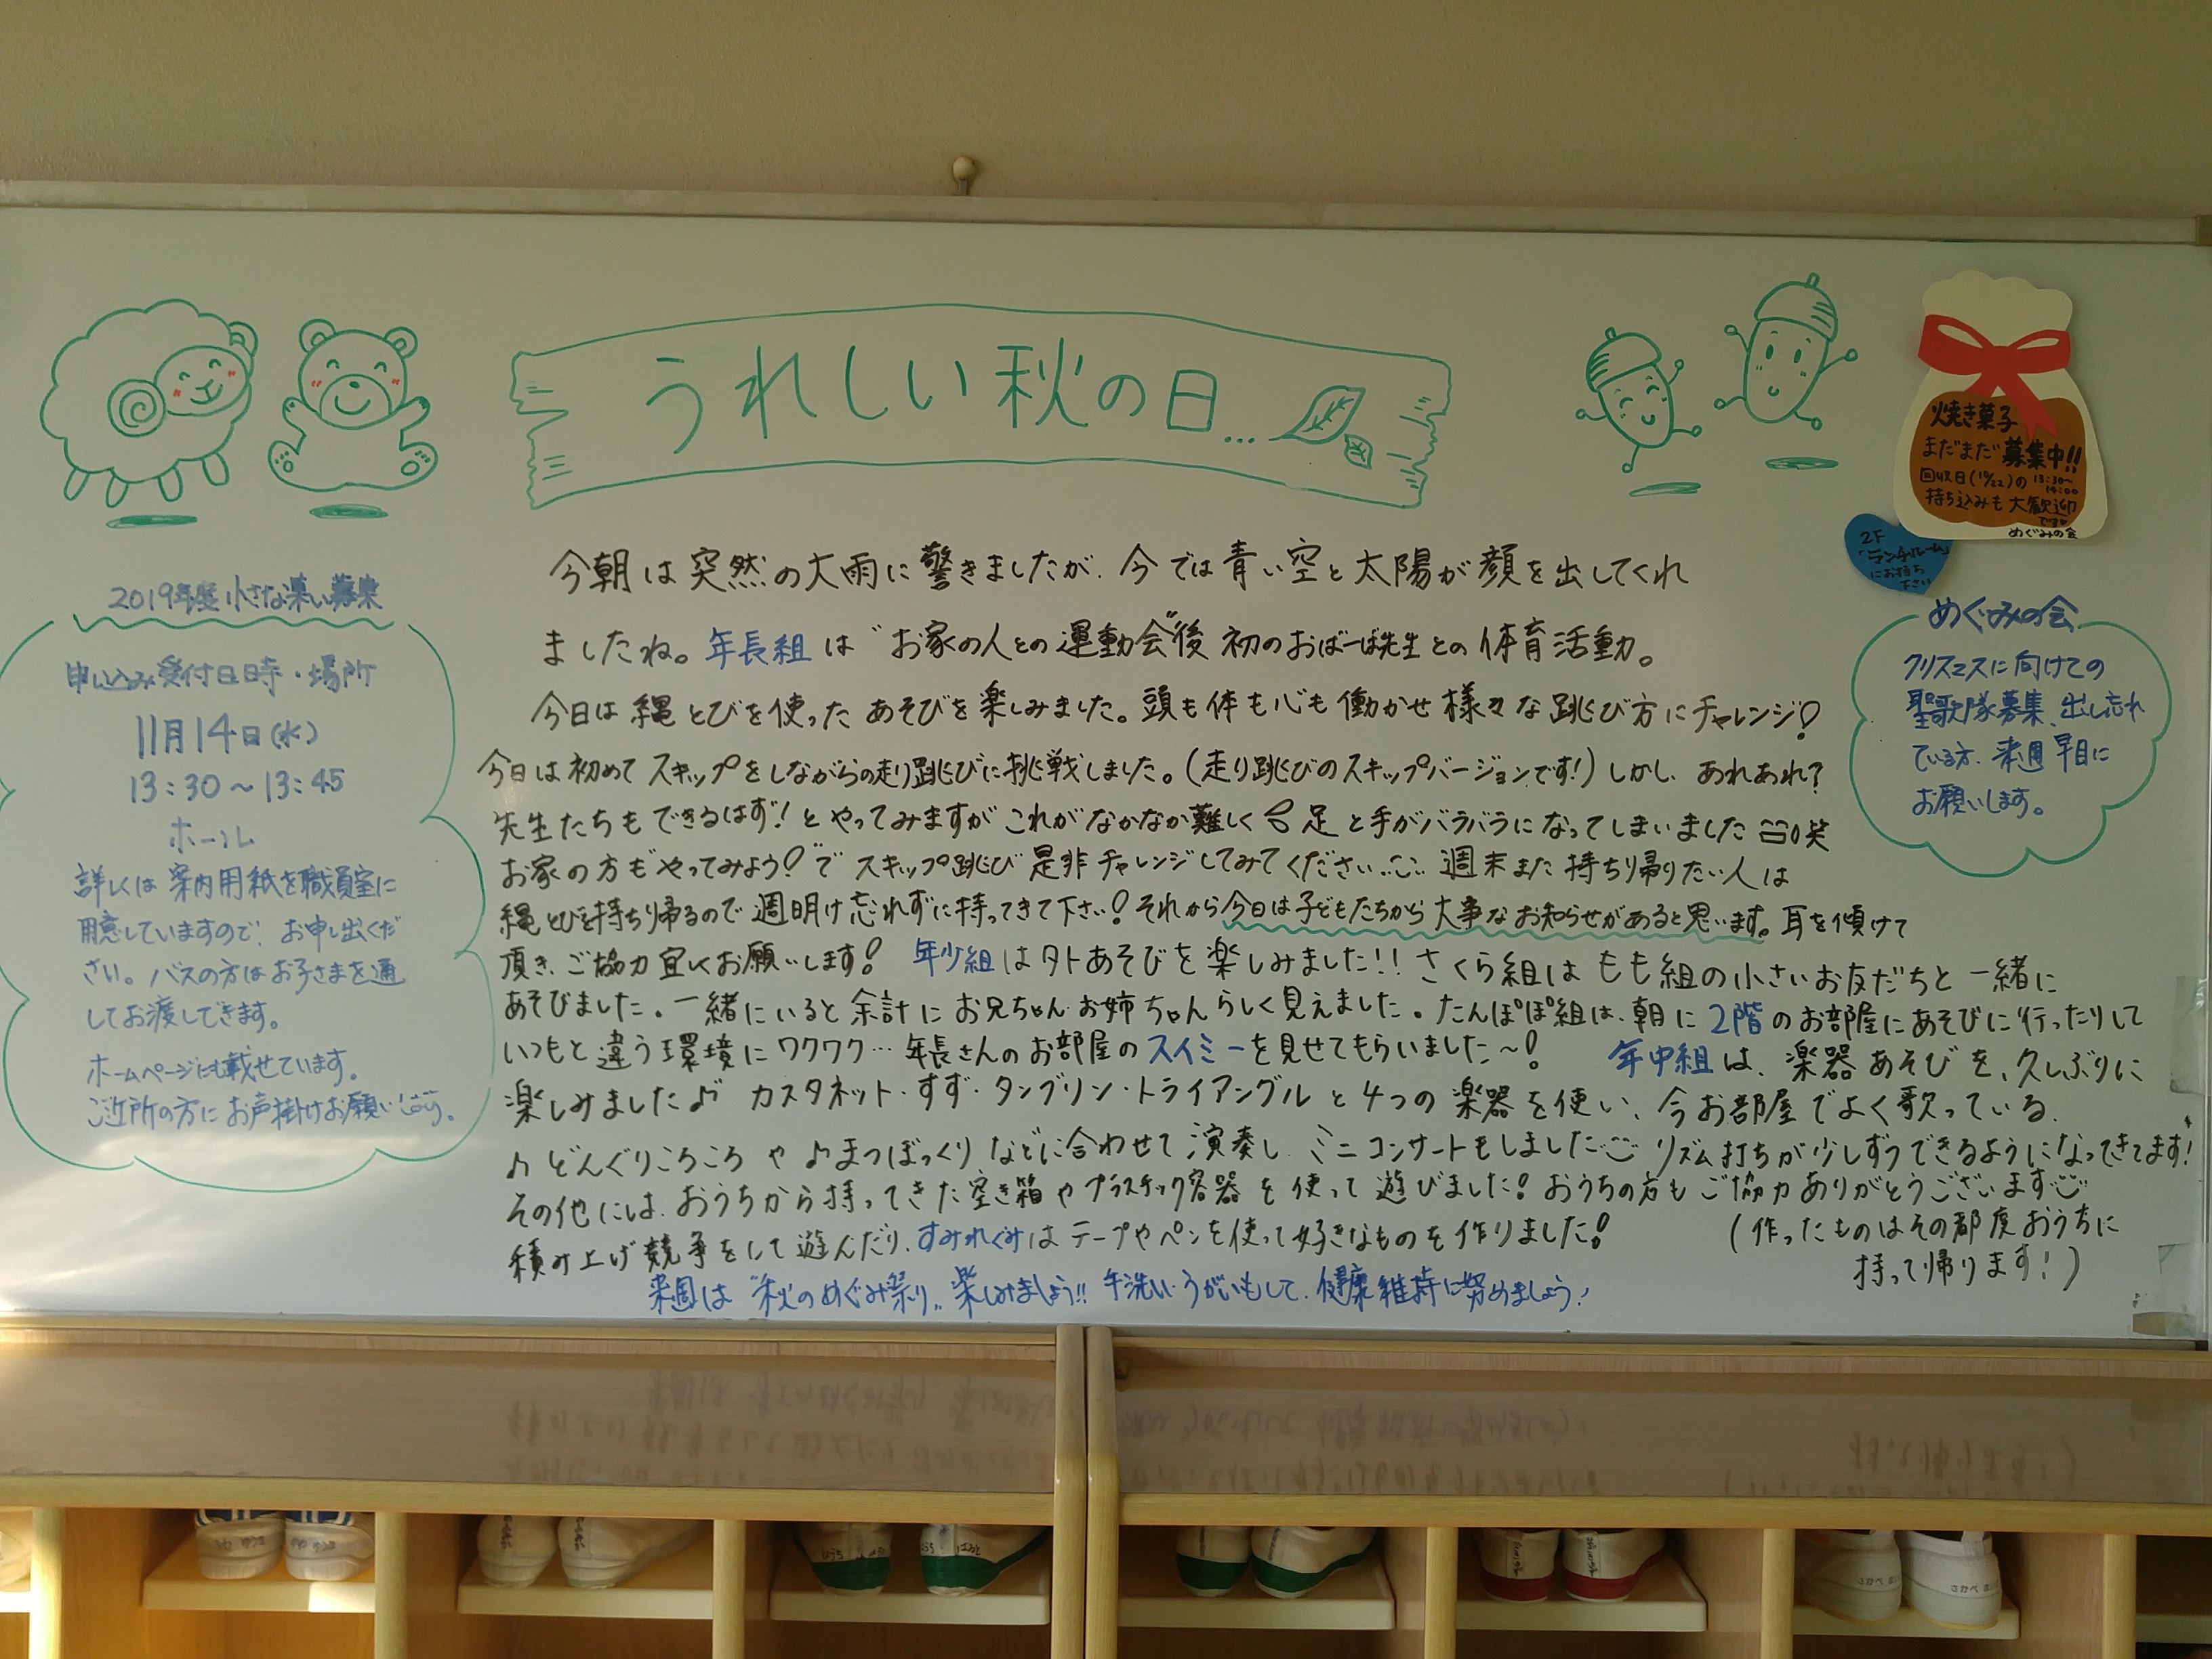 うれしい秋の日…
焼き菓子
まだまだ募集中!!
回収日(10/22)の 13:30〜
14:00
持ち込みも大歓迎
です
めぐみの会
2F
「ランチルーム」
にお持ち
下さい
2019年度 小さな集い募集
申し込み受付日時・場所
11月14日(水)
13:30〜13:45
ホール
詳しくは案内用紙を職員室に
用意していますので、お申し出くだ
さい。バスの方はお子さまを通
してお渡しできます。
ホームページにも載せています。
ご近所の方にお声掛けお願いします。
今朝は突然の大雨に驚きましたが、今では青い空と太陽が顔を出してくれ
ましたね。年長組は"お家の人との運動会"後 初のおばーば先生との体育活動。
今日は縄とびを使ったあそびを楽しみました。頭も体も心も働かせ様々な跳び方にチャレンジ!
今日は初めてスキップをしながらの走り跳びに挑戦しました。(走り跳びのスキップバージョンです!)しかし、あれあれ?
先生たちもできるはず!とやってみますがこれがなかなか難しく足と手がバラバラになってしまいました 笑
お家の方も"やってみよう!"でスキップ跳び是非チャレンジしてみてください 週末また持ち帰りたい人は
縄とびを持ち帰るので週明け忘れずに持ってきて下さい!それから今日は子どもたちから大事なお知らせがあると思います。耳を傾けて
頂き、ご協力宜しくお願いします! 年少組は外あそびを楽しみました!!さくら組はもも組の小さいお友だちと一緒に
あそびました。一緒にいると余計にお兄ちゃんお姉ちゃんらしく見えました。たんぽぽ組は、朝に2階のお部屋にあそびに行ったりして
いつもと違う環境にワクワク…年長さんのお部屋のスイミーを見せてもらいました〜! 年中組は、楽器あそびを、久しぶりに
楽しみました♪ カスタネット・すず・タンブリン・トライアングルと4つの楽器を使い、今お部屋でよく歌っている、
♪どんぐりころころや♪まつぼっくりなどに合わせて演奏し、ミニコンサートもしました リズム打ちが少しずつできるようになってきてます!
その他には、おうちから持ってきた空き箱やプラスチック容器を使って遊びました!おうちの方もご協力ありがとうございます
積み上げ競争をして遊んだり、すみれぐみはテープやペンを使って好きなものを作りました! (作ったものはその都度おうちに
持って帰ります!)
来週は"秋のめぐみ祭り"楽しみましょう!!手洗い・うがいもして、健康維持に努めましょう!
めぐみの会
クリスマスに向けての
聖歌隊募集、出し忘れ
ている方、来週早目に
お願いします。